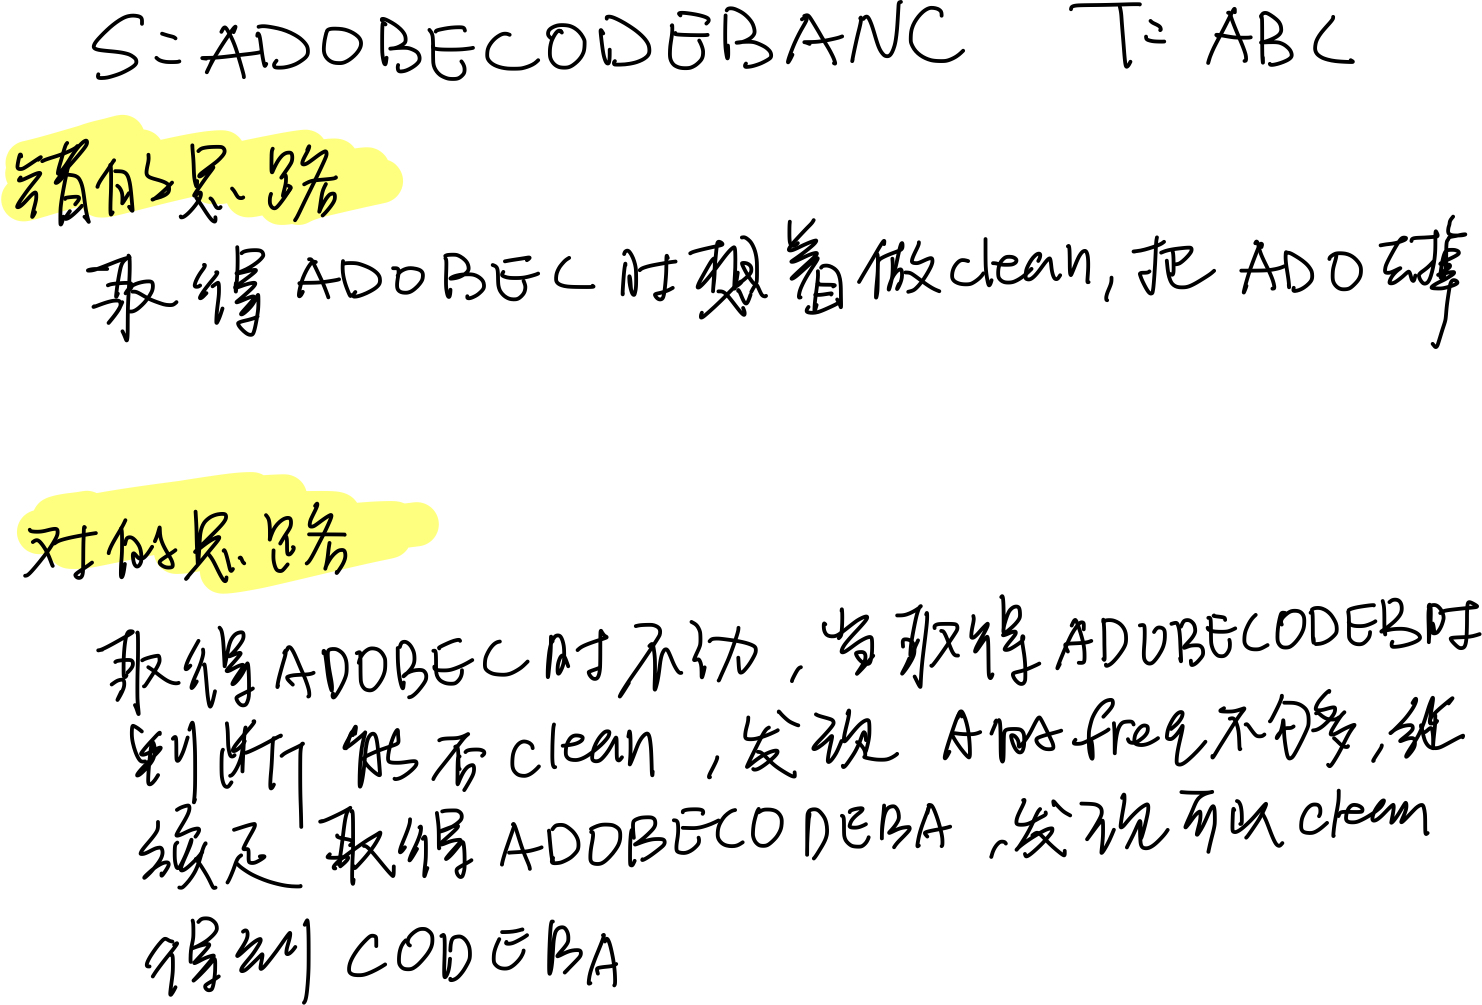 S=ADOBECODEBANC T=ABC
错的思路
取得ADOBEC时想着做clean,把ADO去掉
对的思路
取得ADOBEC时不动,当取得ADOBECODEB时
判断能否clean,发现A的freq不够多,继
续走取得ADOBECODEBA,发现可以clean
得到CODEBA